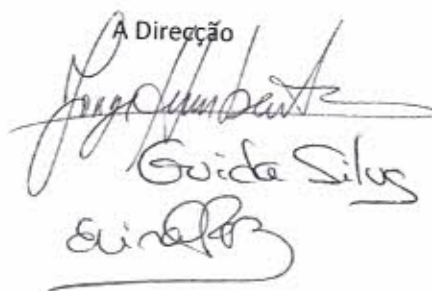 A Direcção
Jorge Humberto
Guida Silva